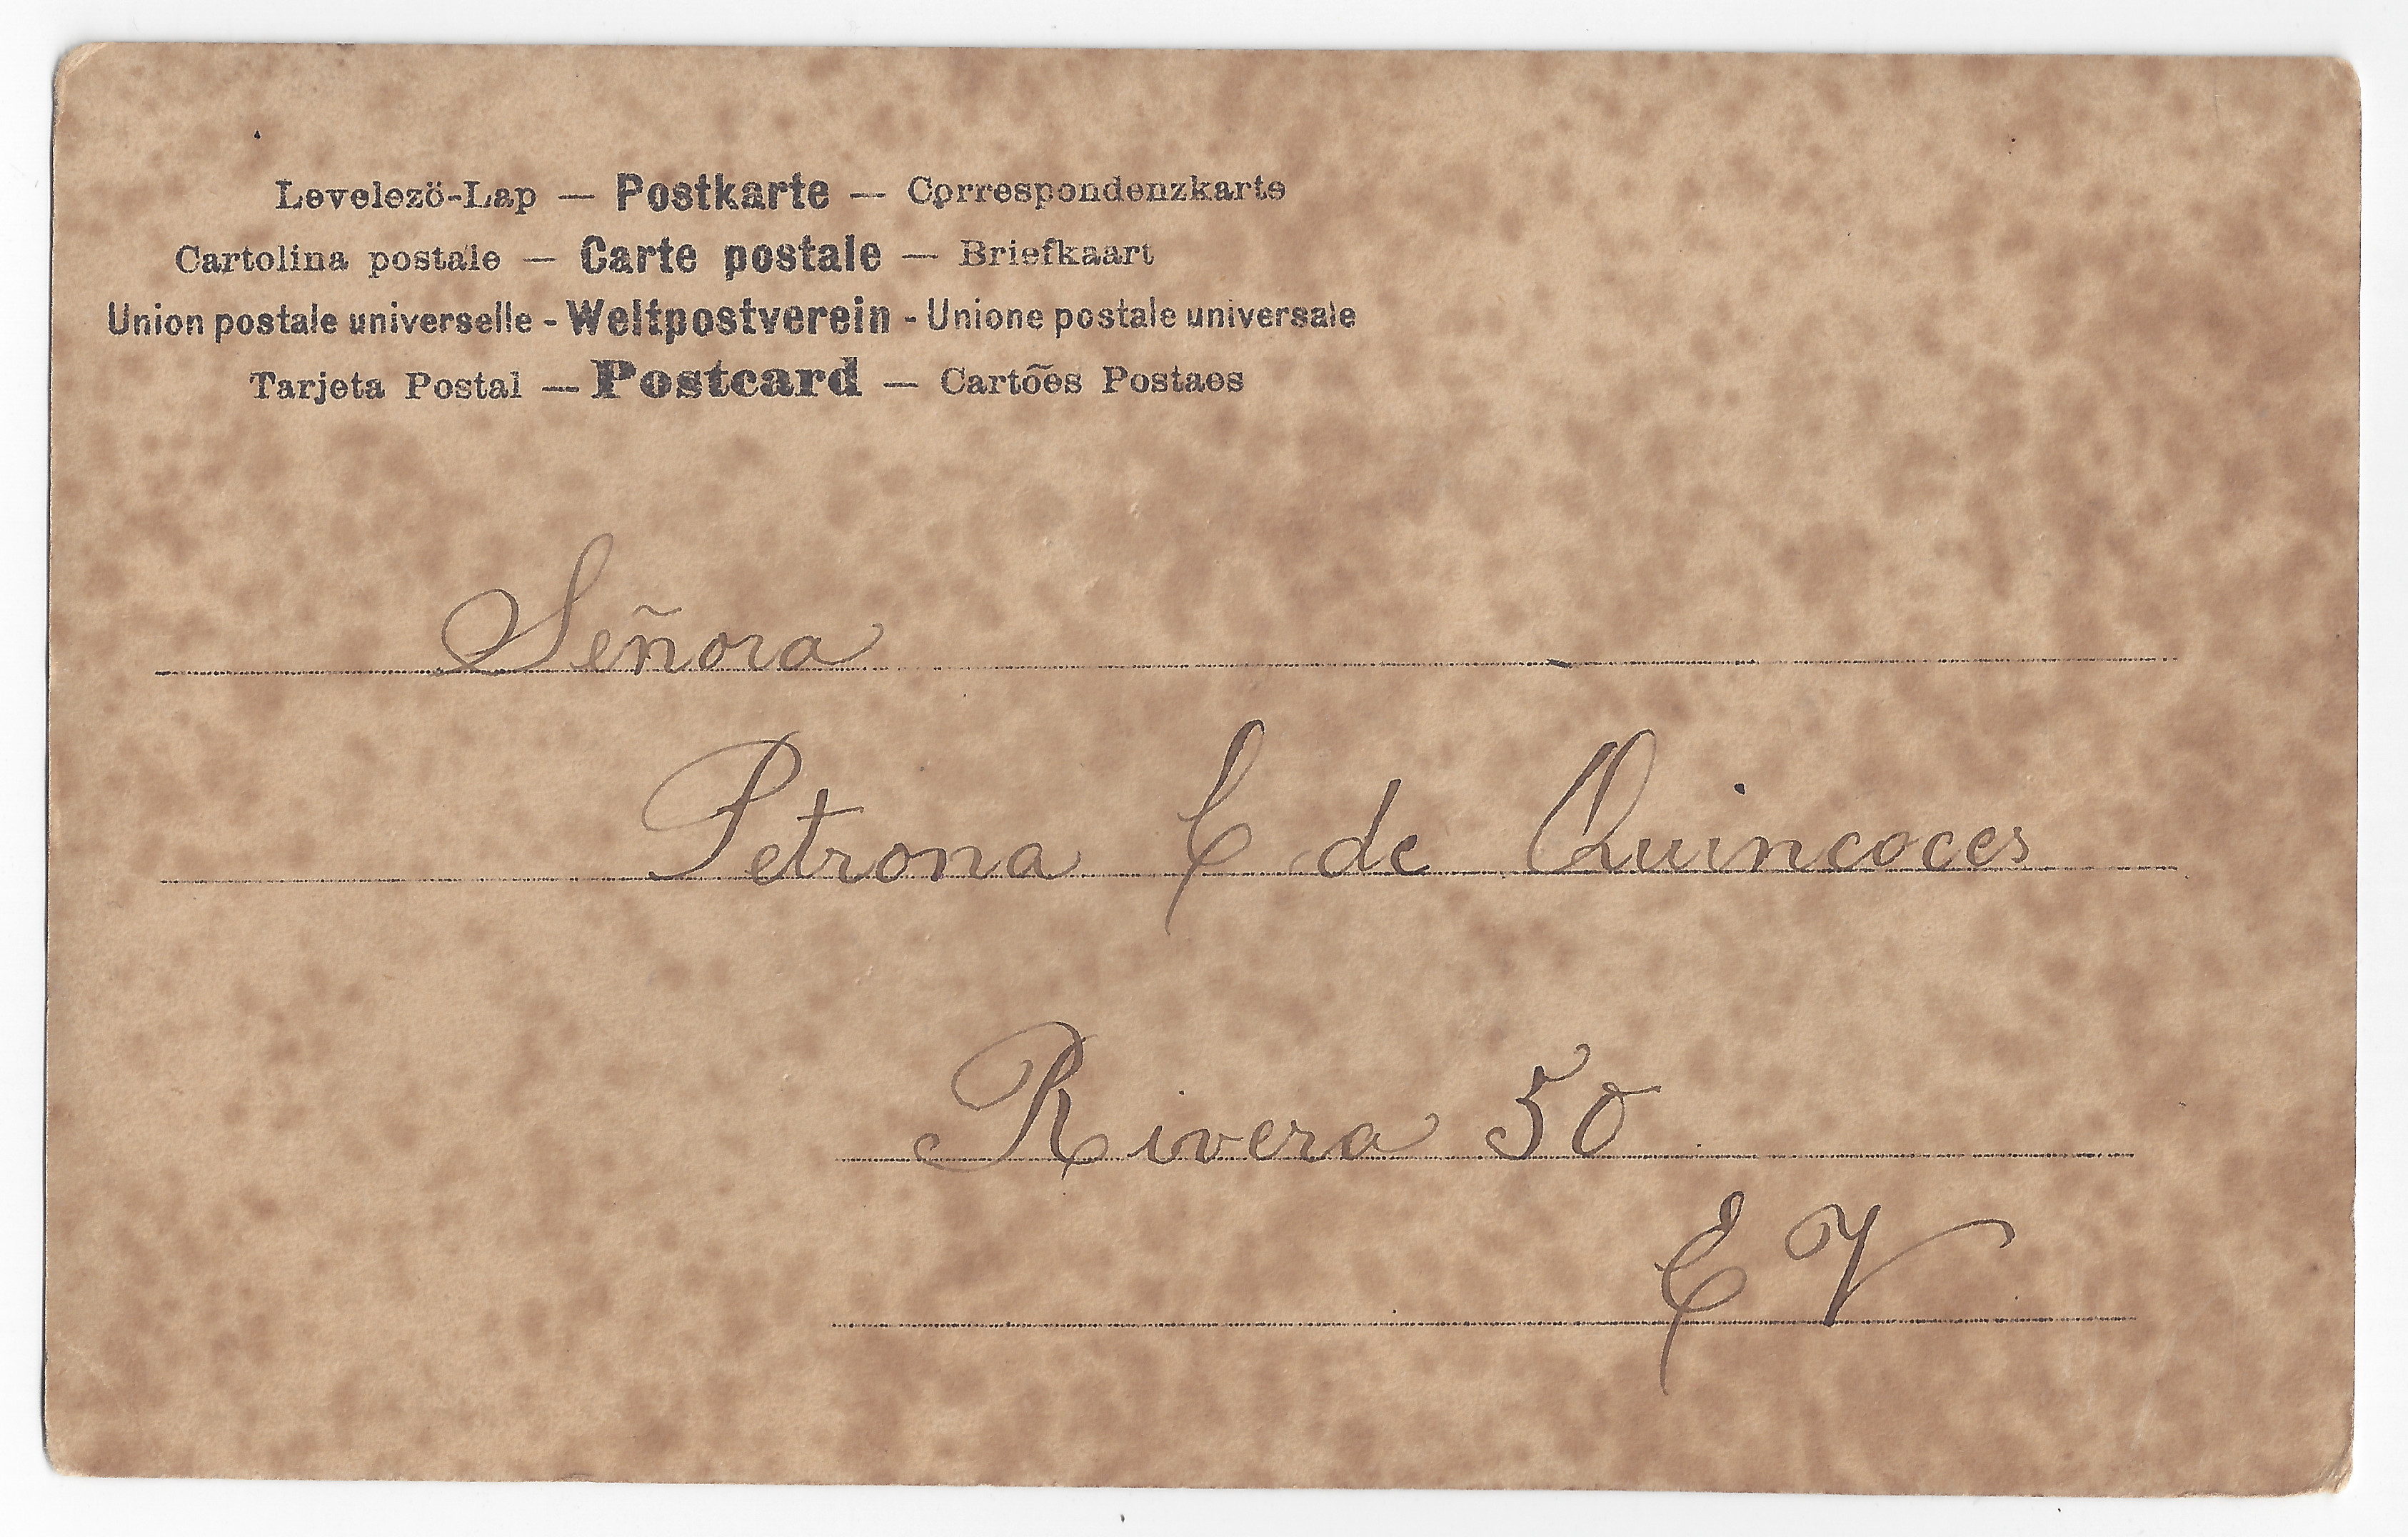 Levelezö-Lap — Postkarte — Correspondenzkarte
Cartolina postale — Carte postale — Briefkaart
Union postale universelle - Weltpostverein - Unione postale universale
Tarjeta Postal — Postcard — Cartões Postaes
Señora
Petrona C de Quincoces
Rivera 50
E V